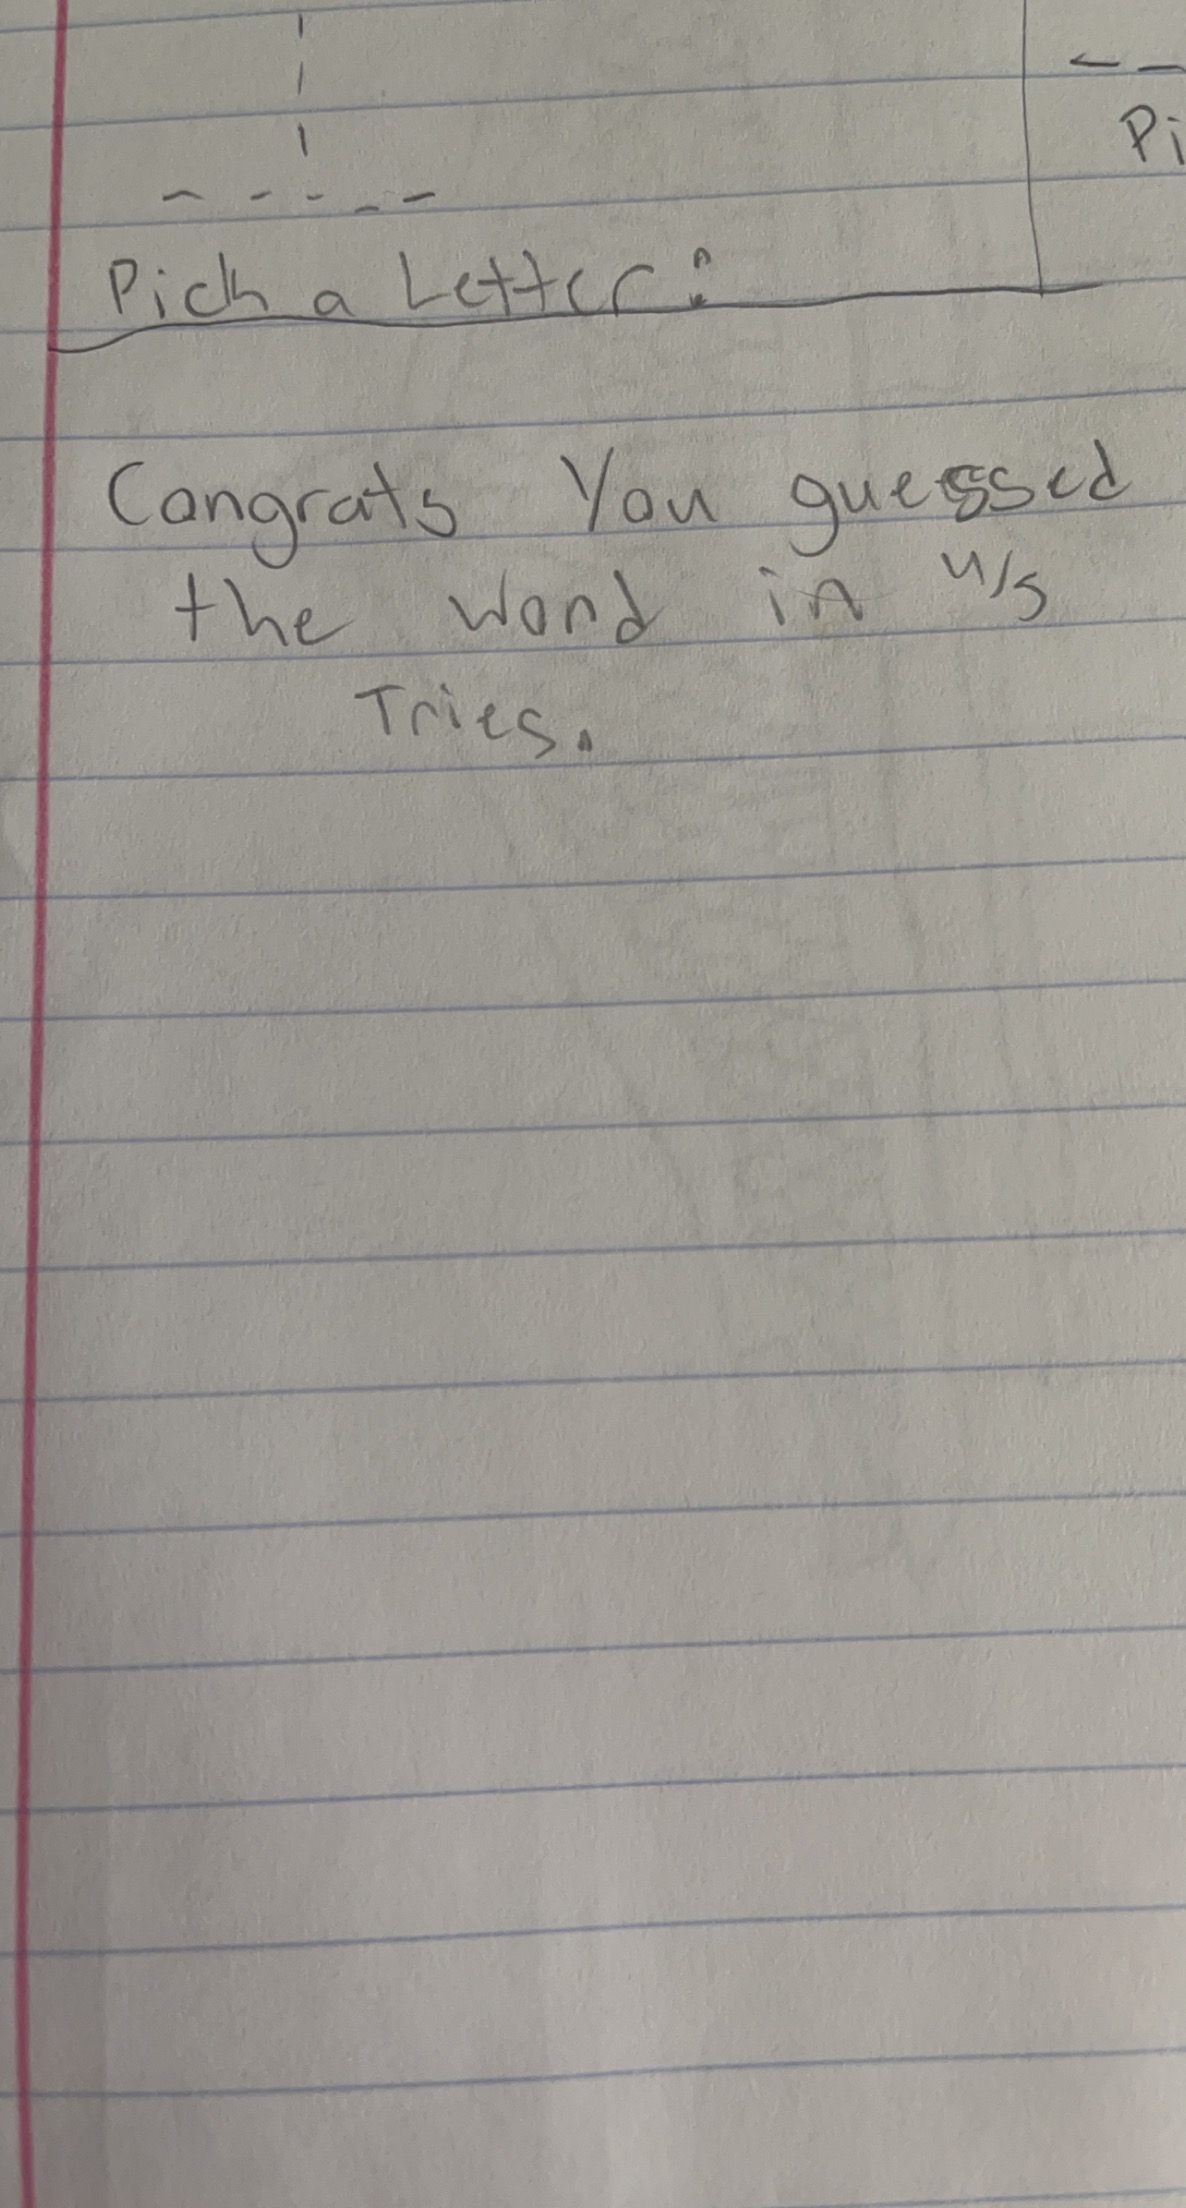 Pi
Pick a Letter:
Congrats You guessed
the word in 4/5
Tries.